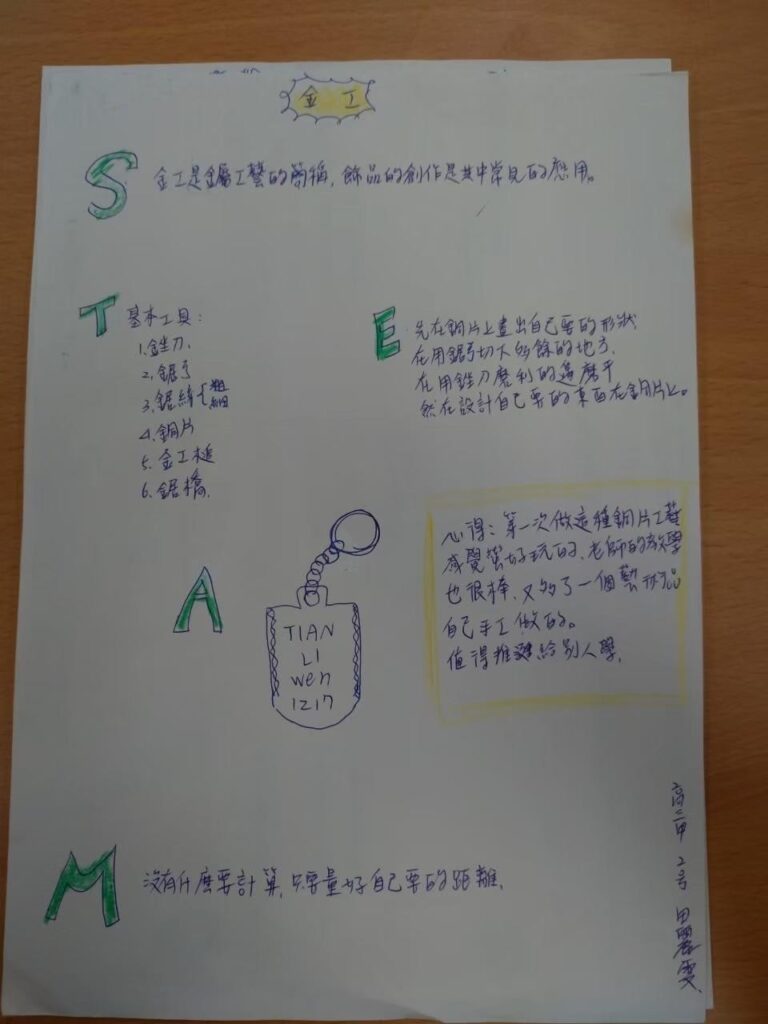 金工
S
金工是金屬工藝的簡稱,飾品的創作是其中常見的應用。
T
基本工具:
1.銼刀.
2.鋸弓
3.鋸絲{粗 細
4.銅片
5.金工槌
6.鋸橋.
E
先在銅片上畫出自己要的形狀
在用鋸弓切大多餘的地方.
在用銼刀磨利的邊磨平
然在設計自己要的東西在銅片上。
A
TIAN
LI
wen
1217
心得:第一次做這種銅片工藝
感覺蠻好玩的.老師的教學
也很棒.又多了一個藝術品
自己手工做的。
值得推薦給別人學.
M
沒有什麼要計算,只要量好自己要的距離.
高二甲 2号 田麗雯